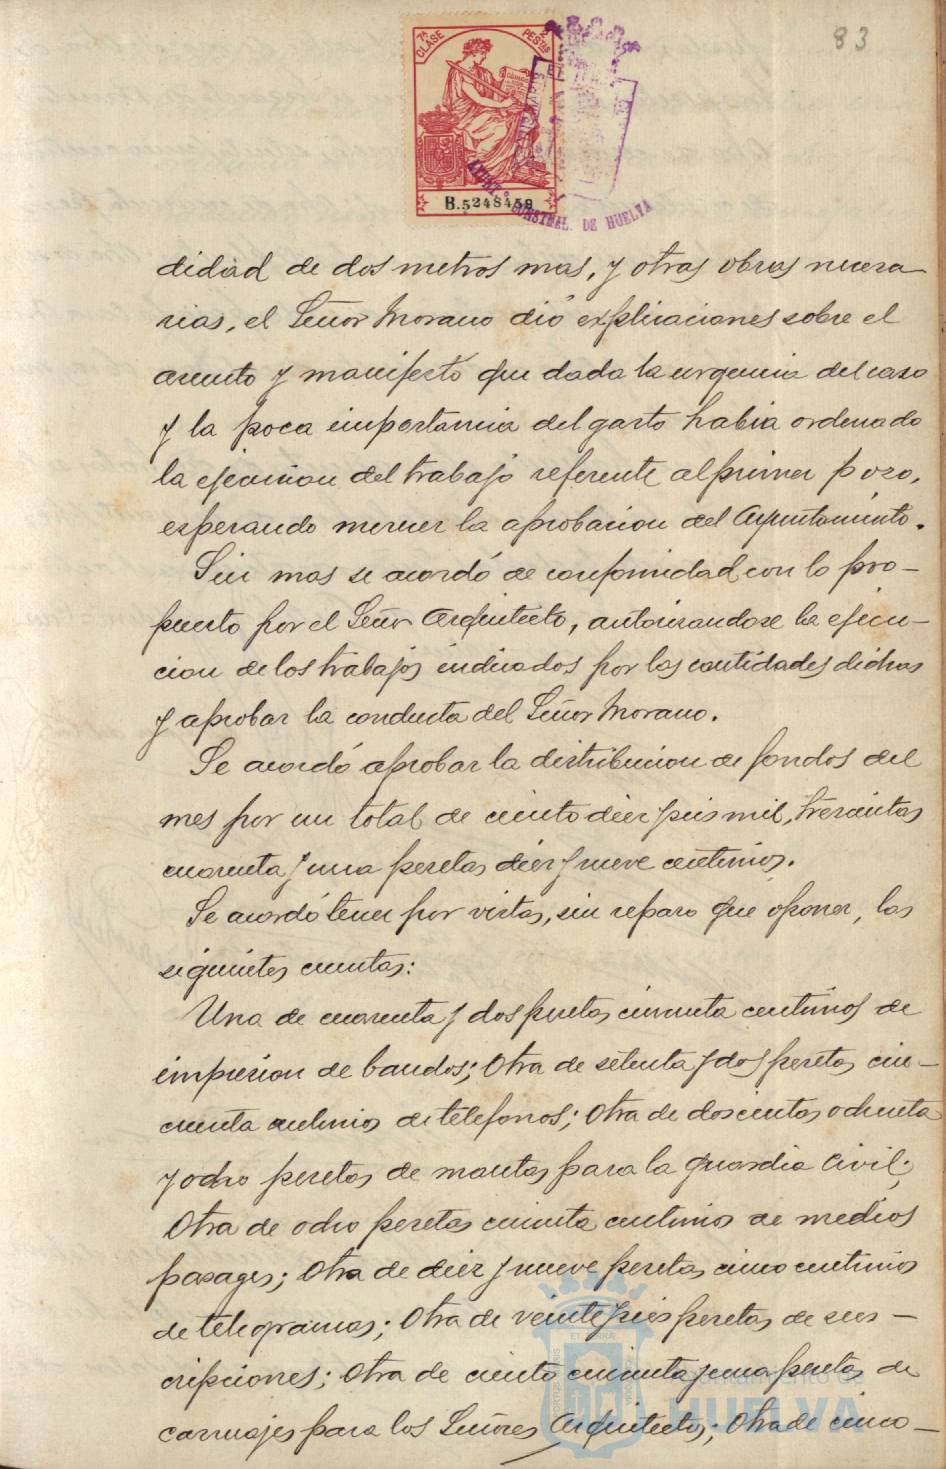 83
7ª CLASE 2 PESTAS
B.5248459
AYUNT.º CONSTNAL. DE HUELVA
didad de dos metros mas, y otras obras necesa-
rias, el Señor Morano dió explicaciones sobre el
asunto y manifestó que dada la urgencia del caso
y la poca importancia del gasto habia ordenado
la ejecucion del trabajo referente al primer pozo,
esperando merecer la aprobacion del Ayuntamiento.
Sin mas se acordó de conformidad con lo pro-
puesto por el Señor Arquitecto, autorizandose la ejecu-
cion de los trabajos indicados por las cantidades dichas
y aprobar la conducta del Señor Morano.
Se acordó aprobar la distribucion de fondos del
mes por un total de ciento diez y seis mil, trescientas
cuarenta y una pesetas diez y nueve centimos.
Se acordó tener por vistas, sin reparo que oponer, las
siguientes cuentas:
Una de cuarenta y dos pesetas cincuenta centimos de
impresion de bandos; Otra de setenta y dos pesetas cin-
cuenta centimos de telefonos; Otra de doscientas ochenta
y ocho pesetas de mantas para la guardia Civil;
Otra de ocho pesetas cincuenta centimos de medios
pasages; Otra de diez y nueve pesetas cinco centimos
de telegramas; Otra de veinte y seis pesetas de sus-
cripciones; Otra de ciento cincuenta y una pesetas de
carruajes para los Señores Arquitectos; Otra de cinco-
Ayuntamiento de
HUELVA